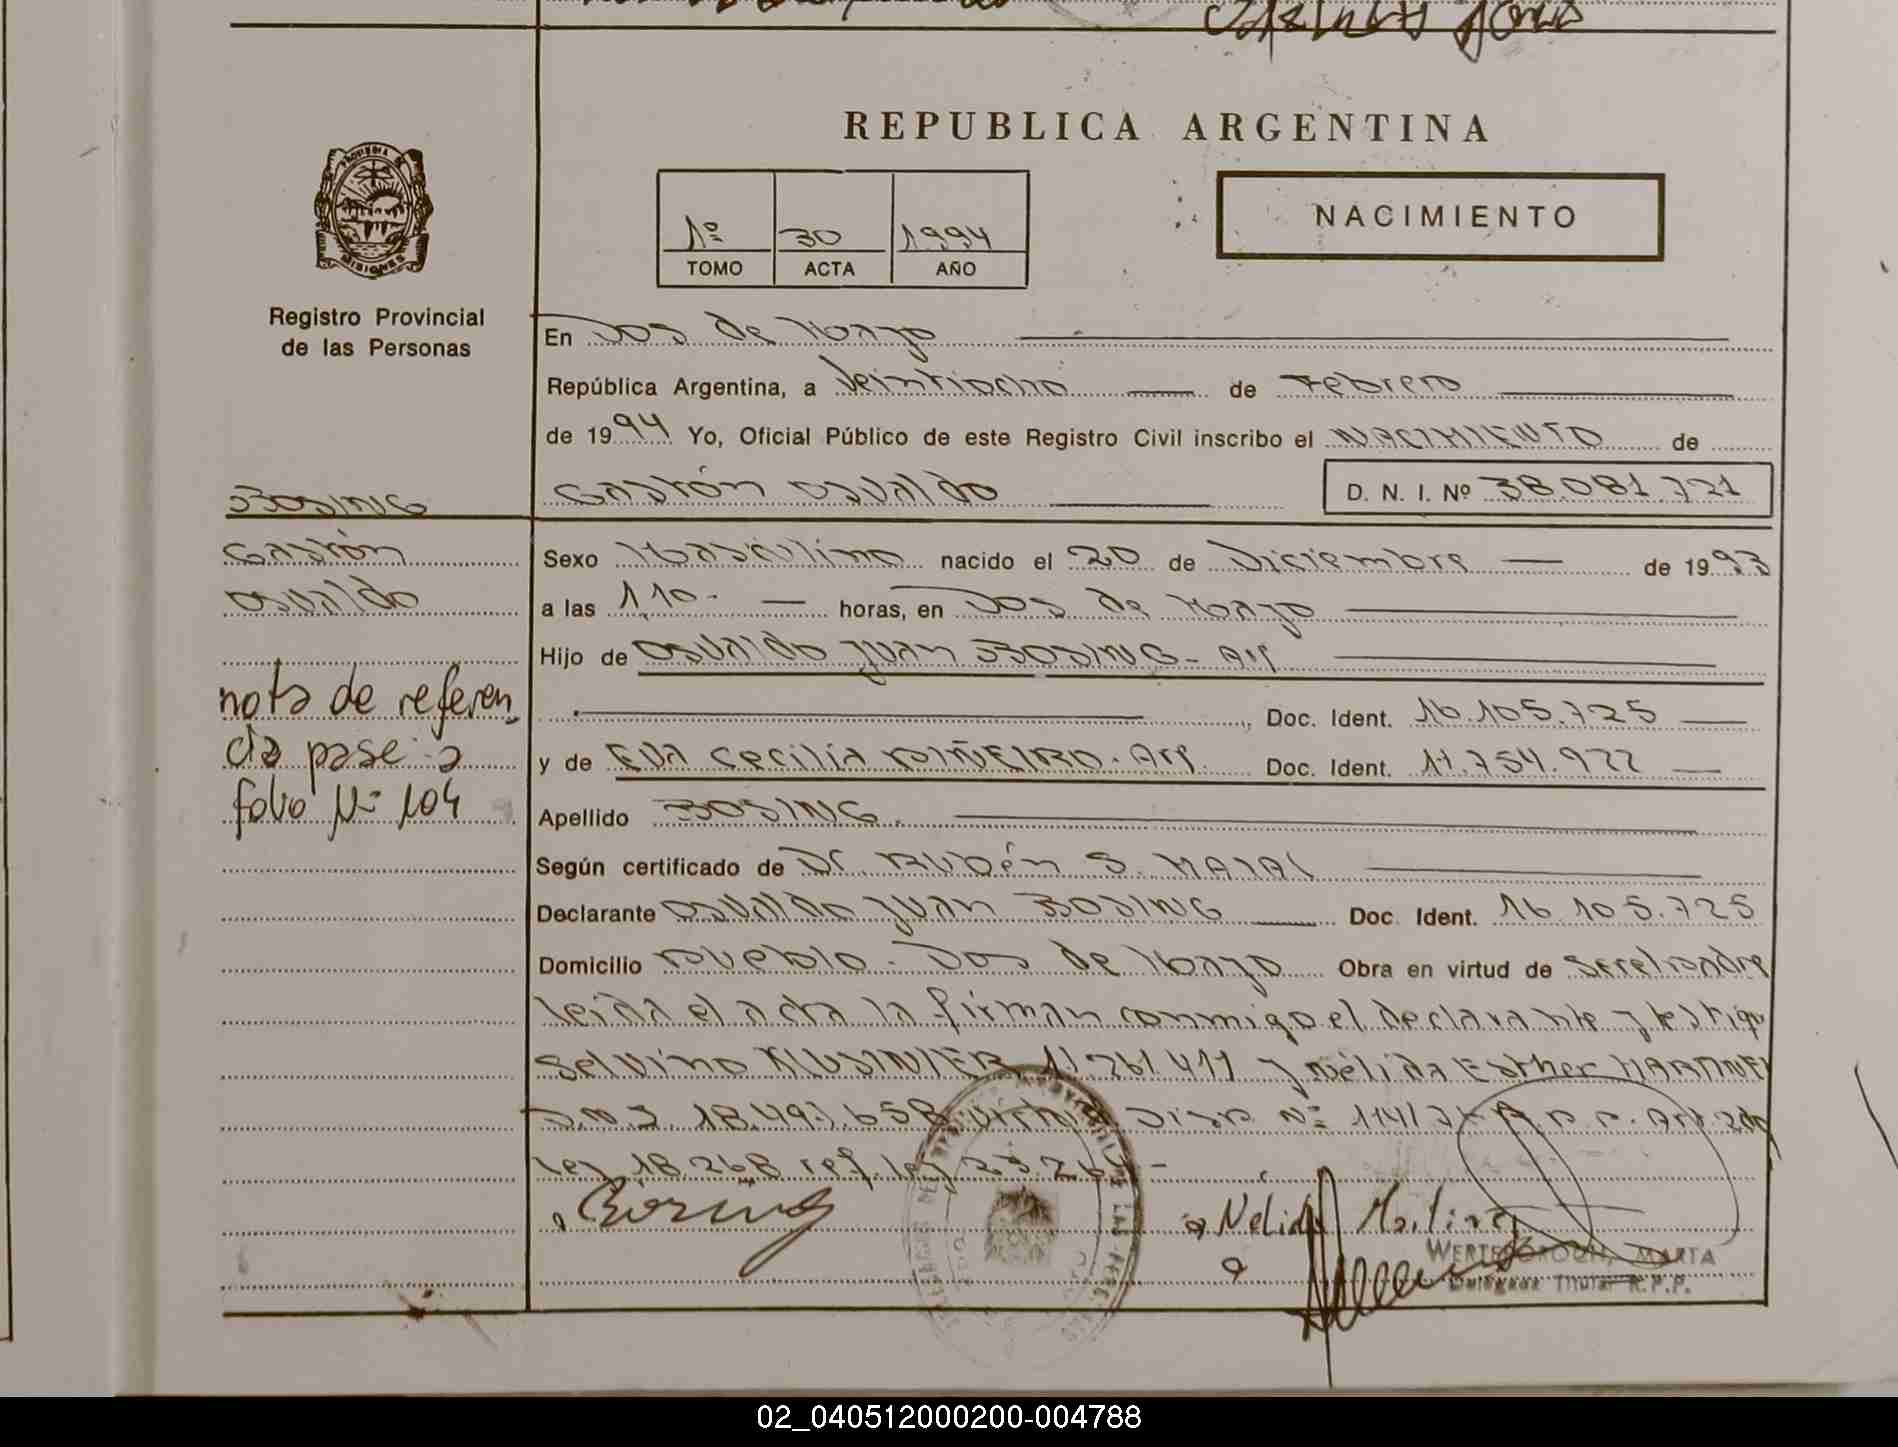 REPUBLICA ARGENTINA
PROVINCIA DE
MISIONES
1º 30 1994
TOMO ACTA AÑO
NACIMIENTO
Registro Provincial
de las Personas
En Dos de Mayo
República Argentina, a Veintiocho de Febrero
de 1994 Yo, Oficial Público de este Registro Civil inscribo el NACIMIENTO de
Gastón Osvaldo D. N. I. Nº 38.081.721
BOSING
Gastón
Osvaldo
nota de referen
cia pase a
folio Nº 104
Sexo Masculino nacido el 20 de Diciembre de 1993
a las 1,10.- horas, en Dos de Mayo
Hijo de Osvaldo Juan BOSING - Arg
Doc. Ident. 16.105.725
y de Eva Cecilia PIÑEIRO. Arg. Doc. Ident. 17.754.922
Apellido BOSING.
Según certificado de Dr. Rubén S.
Declarante Osvaldo Juan BOSING Doc. Ident. 16.105.725
Domicilio Pueblo - Dos de Mayo Obra en virtud de Ser el padre
leida el acta la firman conmigo el declarante y testigo
Selvino 11.261.411 y Nélida Esther MARTINEZ
D.N.I. 18.497.658 virtud Disp. Nº 114/ R.P.P. Art. 2do
ley 18.268 ref. ley
Bosing
Nelida Martinez
MARTA
Delegada Titular R.P.P.
02_040512000200-004788